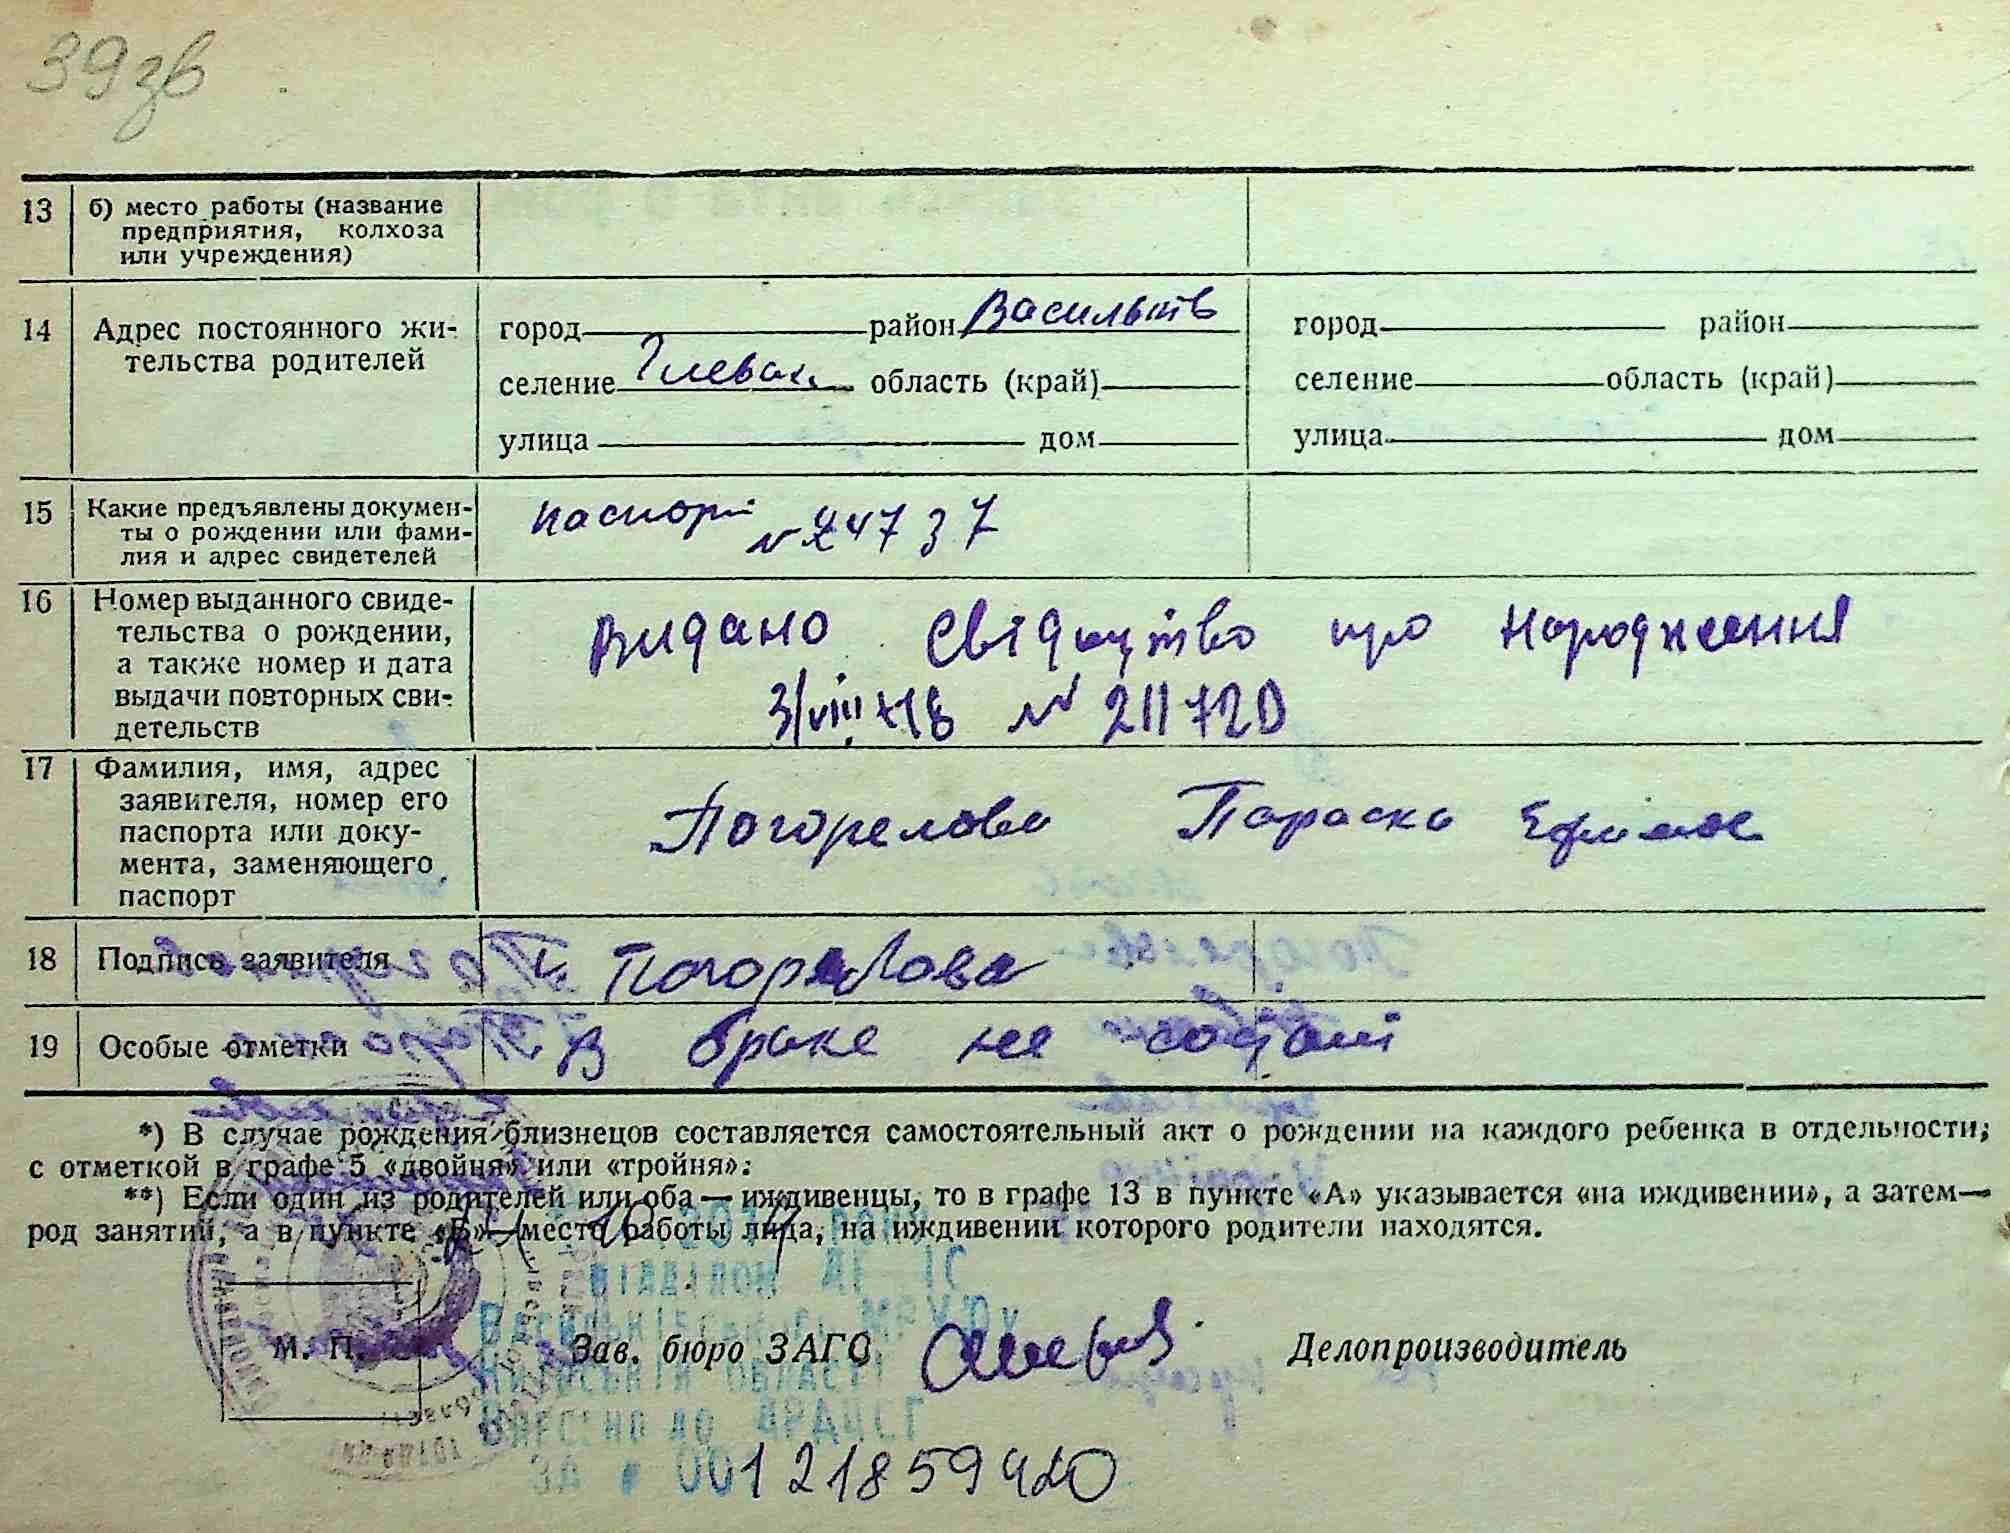 39зв
13 б) место работы (название
предприятия, колхоза
или учреждения)
14 Адрес постоянного жи-
тельства родителей
город район Васильків
селение Глеваха область (край)
улица дом
город район
селение область (край)
улица дом
15 Какие предъявлены докумен-
ты о рождении или фами-
лия и адрес свидетелей
паспорт
№ 24737
16 Номер выданного свиде-
тельства о рождении,
а также номер и дата
выдачи повторных сви-
детельств
Видано Свідоцтво про Народження
3/VIII 48 № 211720
17 Фамилия, имя, адрес
заявителя, номер его
паспорта или доку-
мента, заменяющего
паспорт
Погорелова Параска
18 Подпись заявителя
Погорелова
19 Особые отметки
В браке не состоит
*) В случае рождения близнецов составляется самостоятельный акт о рождении на каждого ребенка в отдельности;
с отметкой в графе 5 «двойня» или «тройня».
**) Если один из родителей или оба — иждивенцы, то в графе 13 в пункте «А» указывается «на иждивении», а затем—
род занятий, а в пункте «Б»—место работы лица, на иждивении которого родители находятся.
М. П. Зав. бюро ЗАГС Делопроизводитель
ВІДДІЛОМ
ВАСИЛЬКІВСЬКОГО МРУЮ
КИЇВСЬКІЙ ОБЛАСТІ
ВНЕСЕНО ДО ДРАЦСГ
ЗА № 00121859420